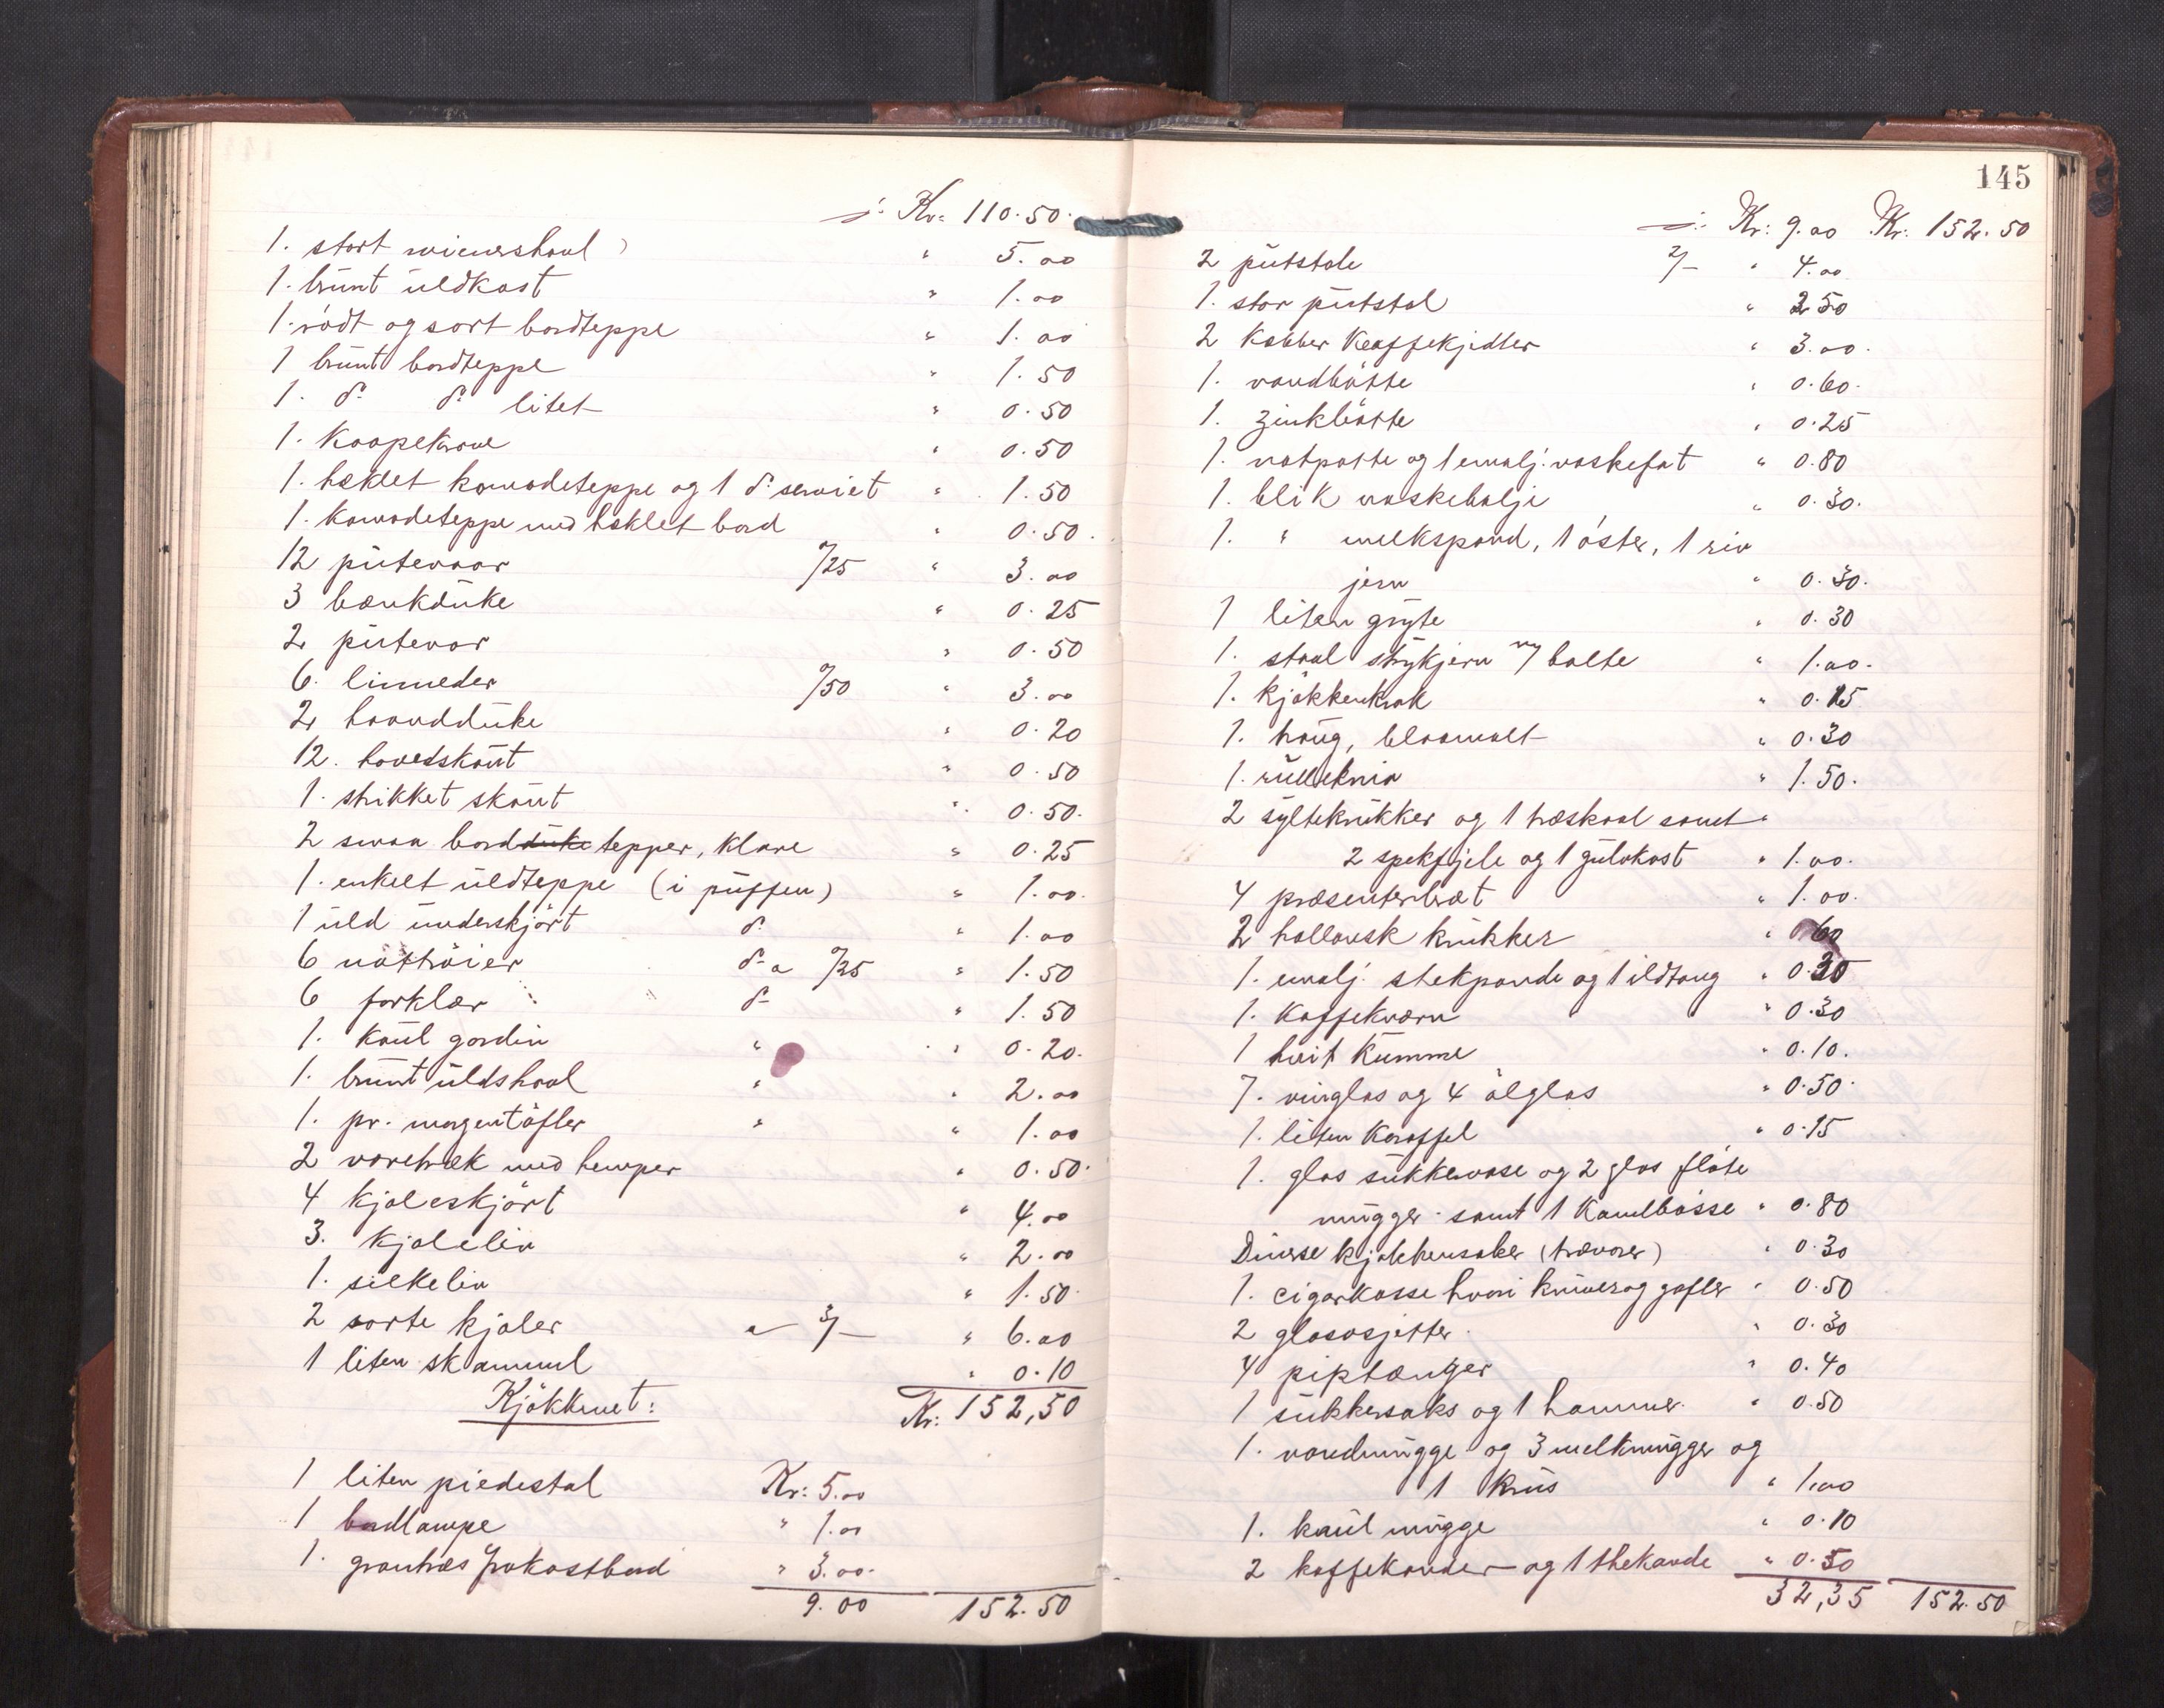 j: Kr: 110.50.
1. stort wienershavl " 5.00
1. brunt uldkast " 1.00
1. rödt og sort bordteppe " 1.00
1 brunt bordteppe " 1.50
1. do do litet " 0.50
1. Kaapekrave " 0.50
1. heklet komodeteppe og 1 do serviet " 1.50
1. komodeteppe med heklet bord " 0.50.
12 putevaar 0/25 " 3.00
3 bænkduke " 0.25
2 putevar " 0.50
6. linneder 0/50 " 3.00
2 haandduke " 0.20
12. hovedskaut " 0.50
1. strikket skaut " 0.50.
2 smaa bordduke tepper, klare " 0.25
1. enkelt uldteppe (i puffen) " 1.00.
1 uld underskjört do " 1.00
6 nattröier do a 0/25 " 1.50
6 forklær do " 1.50
1. Kaul gardin " " 0.20.
1. brunt uldshavl " " 2.00
1. pr. morgentöfler " " 1.00
2 varetræk med hemper " 0.50.
4 kjoleskjört " 4.00
3. Kjoleliv " 2.00
1. silkeliv " 1.50
2 sorte kjoler a 3/- " 6.00
1 liten skammel " 0.10
Kjökkenet: Kr: 152,50
1 liten piedestal Kr: 5.00
1 bordlampe " 1.00
1. grantræs frokostbord " 3.00.
9.00 152.50
145
j: Kr: 9.00 Kr: 152.50
2 putstole 2/- " 4.00
1. stor putstol " 2.50
2 Kobber Kaffekjedler " 3.00.
1. vandbötte " 0.60.
1. zinkbötte " 0.25
1. natpotte og 1 emalj. vaskefat " 0.80
1. blik vaskebalje " 0.30.
1. " melkspand, 1 öster, 1 riv
jern " 0.30.
1 liten gryte " 0.30
1. staal strykjern m/ bolte " 1.00.
1. Kjökkenkrak " 0.15
1. traug, blaamalt " 0.30
1. rullekniv " 1.50.
2 syltekrukker og 1 træskaal samt "
2 spekfjele og 1 gulvkost " 1.00.
4 præsenterbræt " 1.00.
2 hollansk krukker " 0.60
1. emalj. stekpande og 1 ildtang " 0.30
1. Kaffekværn " 0.30
1 hvit Kumme " 0.10.
7. vinglas og 4 ölglas " 0.50.
1. liten Karaffel " 0.15
1. glas sukkervase og 2 glas flöte
mugger samt 1 Kanelbösse " 0.80
Diverse kjökkensaker (trævarer) " 0.30
1. cigarkasse hvori kniver og gafler " 0.50
2 glasasjetter " 0.30
4 piptænger " 0.40
1 sukkersaks og 1 hammer. " 0.50
1. vandmugge og 3 melkmugger og
1 Krus " 1.00
1. kaul mugge " 0.10
2 kaffekander og 1 thekande " 0.50
32,35 152.50